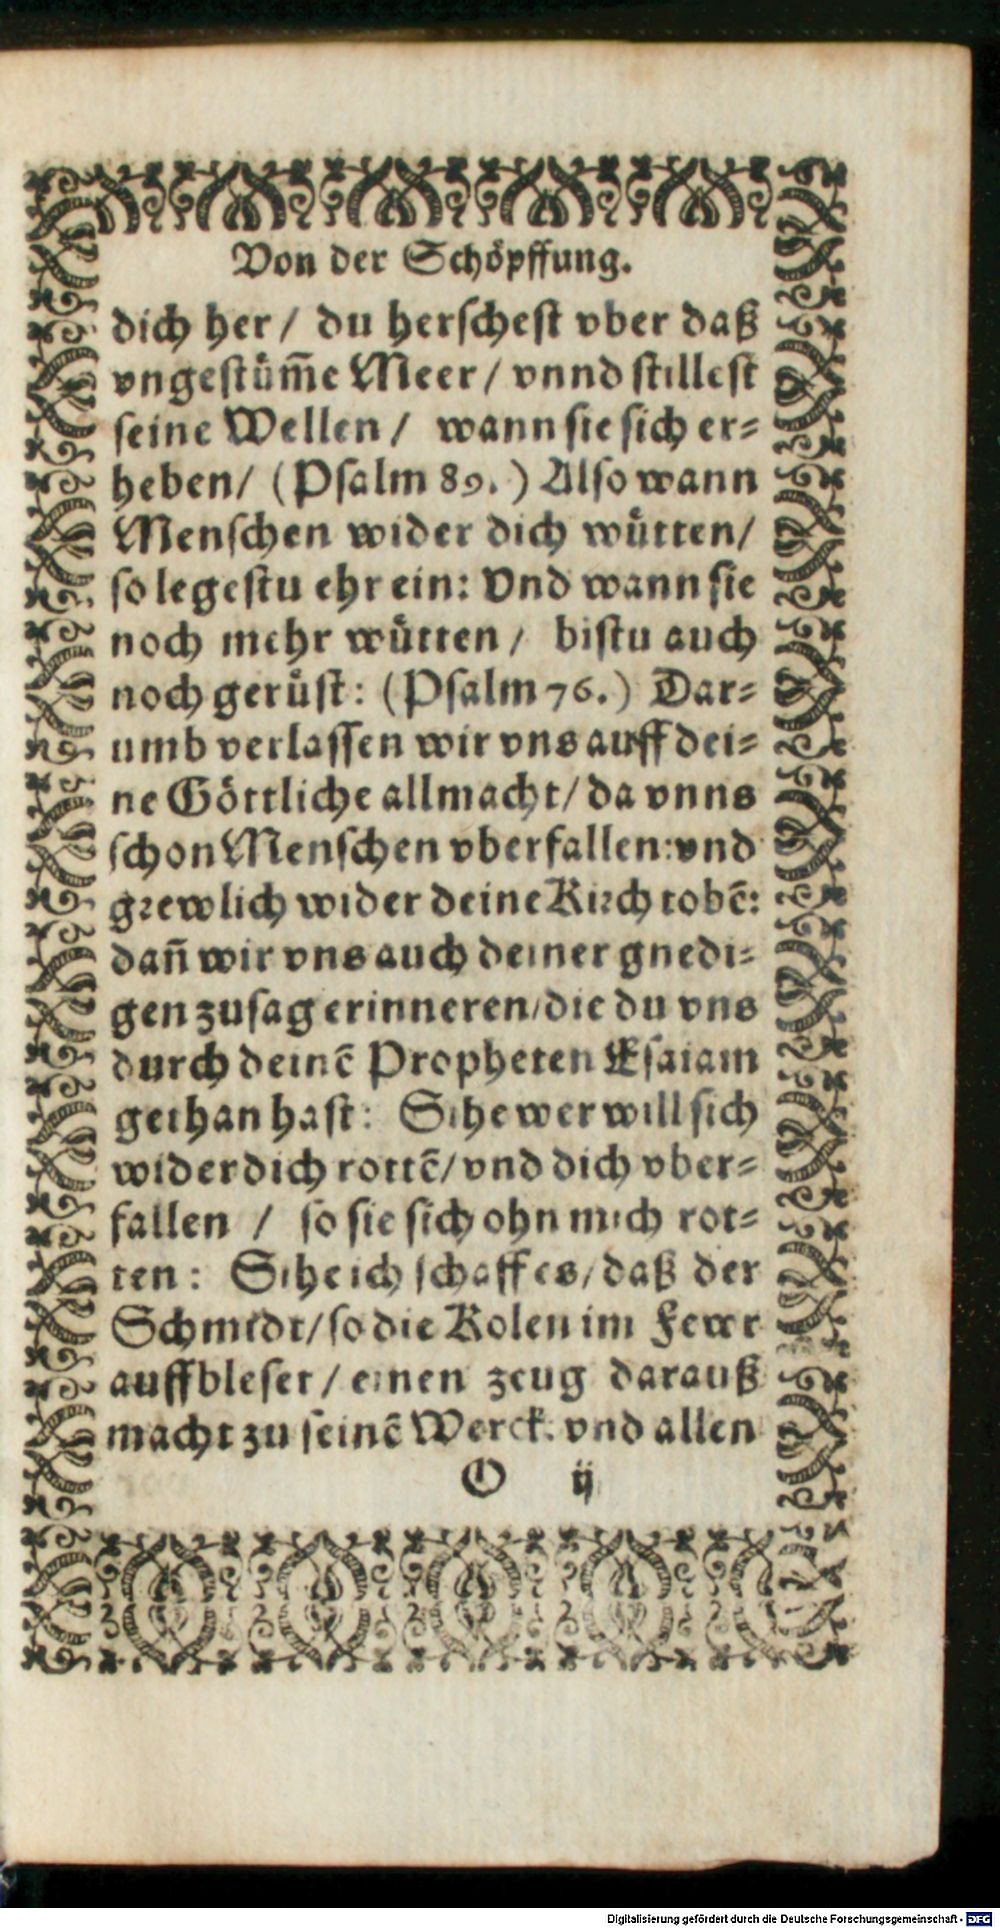 Von der Schöpffung.
dich her / du herschest vber daß
vngestüm̃e Meer / vnnd stillest
seine Wellen / wann sie sich er-
heben / (Psalm 89.) Also wann
Menschen wider dich wütten /
so legestu ehr ein: Vnd wann sie
noch mehr wütten / bistu auch
noch gerüst: (Psalm 76.) Dar-
umb verlassen wir vns auff dei-
ne Göttliche allmacht / da vnns
schon Menschen vberfallen: vnd
grewlich wider deine Kirch tobẽ:
dañ wir vns auch deiner gnedi-
gen zusag erinneren / die du vns
durch deinẽ Propheten Esaiam
gethan hast: Sihe wer will sich
wider dich rottẽ / vnd dich vber-
fallen / so sie sich ohn mich rot-
ten: Sihe ich schaff es / daß der
Schmidt / so die Kolen im Fewr
auffbleset / einen zeug darauß
macht zu seinẽ Werck: vnd allen
O ij
Digitalisierung gefördert durch die Deutsche Forschungsgemeinschaft - DFG